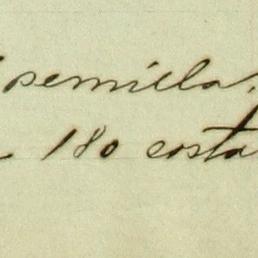 semilla,
180 costa